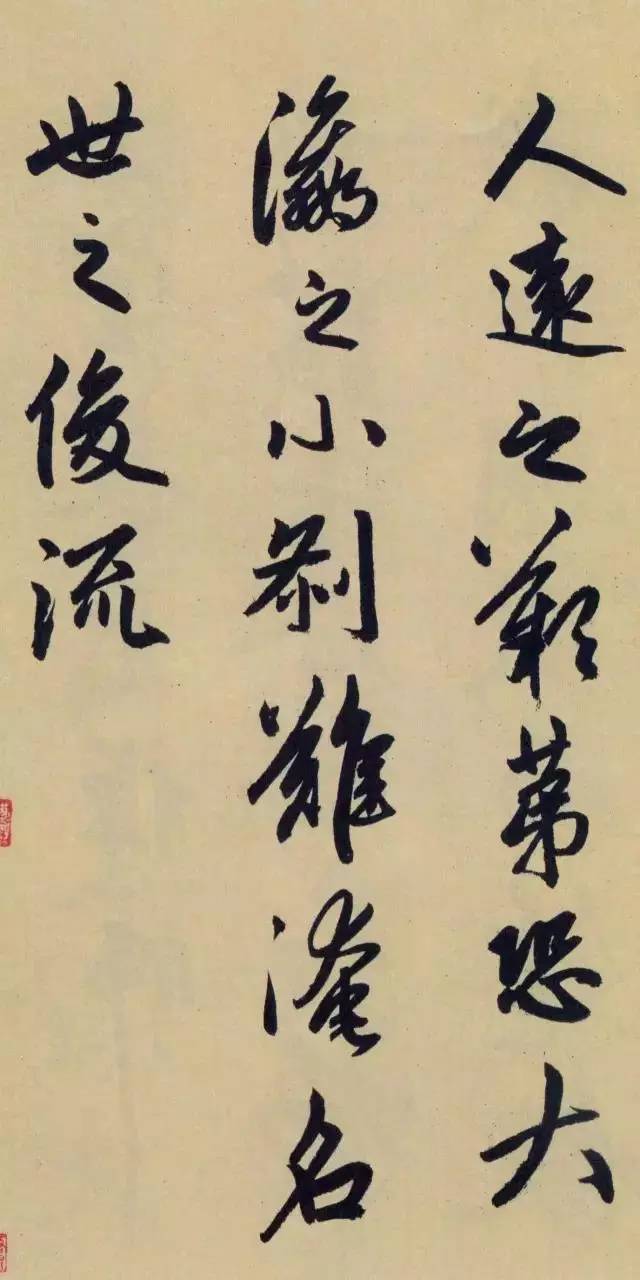 人遠之難第恐大
瀛之小刹難淹名
世之俊流